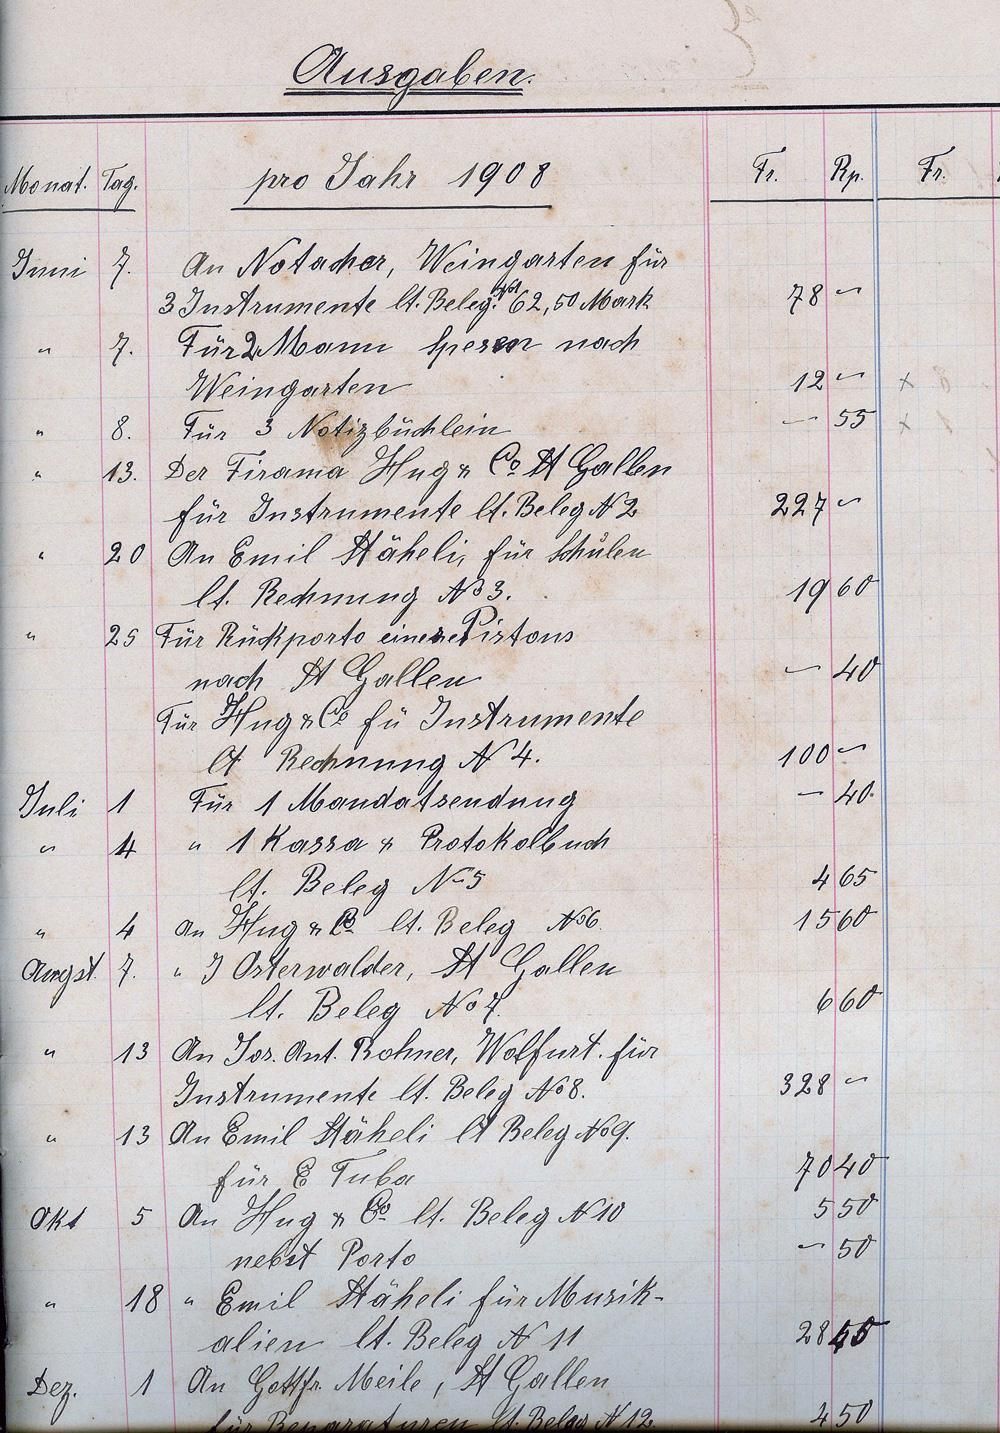 Ausgaben.
Monat. Tag. pro Jahr 1908 Fr. Rp. Fr.
Juni 7. An Notacher, Weingarten für
3 Instrumente lt. Beleg. 62,50 Mark 78 —
" 7. Für 2 Mann Spesen nach
Weingarten 12 —
" 8. Für 3 Notizbüchlein — 55
" 13. Der Firama Hug & Co St Gallen
für Instrumente lt. Beleg N 2 227 —
" 20 An Emil Stäheli, für Schulen
lt. Rechnung No 3. 19 60
" 25 Für Rückporto eines Pistons
nach St Gallen — 40
Für Hug & Co fü Instrumente
lt Rechnung N 4. 100 —
Juli 1 Für 1 Mandatsendung — 40.
" 4 " 1 Kassa & Protokolbuch
lt. Beleg No 5 4 65
" 4 an Hug & Co lt. Beleg No 6. 15 60
Augst. 7. " J Osterwalder, St Gallen
lt. Beleg No 7. 6 60
" 13 An Jos. Ant. Rohner, Wolfurt. für
Instrumente lt. Beleg No 8. 328 —
" 13 An Emil Stäheli lt Beleg No 9.
für E Tuba 70 40
Okt 5 An Hug & Co lt. Beleg N 10 5 50
nebst Porto — 50
" 18 " Emil Stäheli für Musik-
alien lt. Beleg N 11 28
Dez. 1 An Gottfr. Meile, St Gallen
für Reparaturen lt. Beleg N 12 50